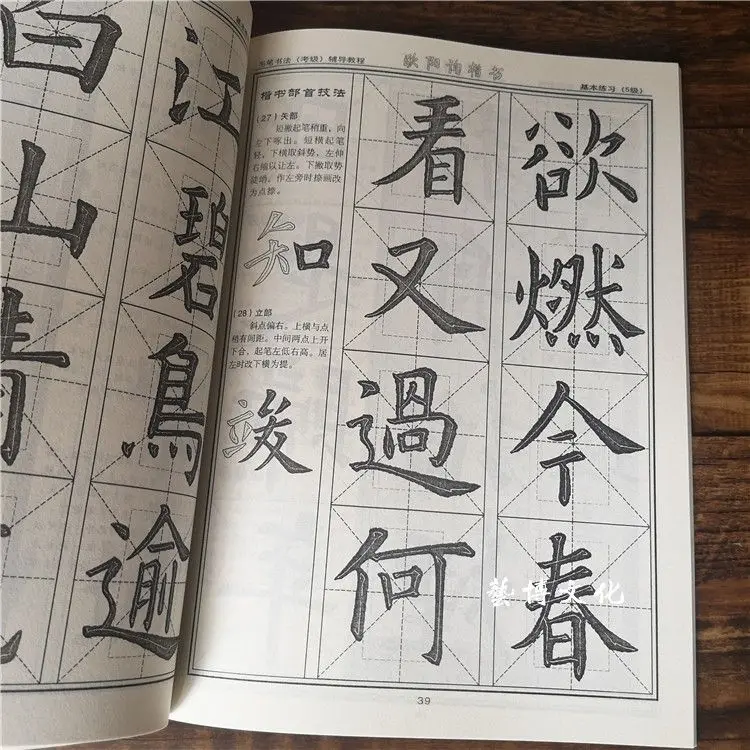 江碧鳥逾
白山青
毛笔书法（考级）辅导教程
欧阳询楷书
基本练习（5级）
欲燃今春
看又過何
楷书部首技法
（27）矢部
短撇起笔稍重，向
左下啄出。短横起笔
轻，下横取斜势，左伸
右缩以让左。下撇取势
陡峭。作左旁时捺画改
为点捺。
知
（28）立部
斜点偏右。上横与点
稍有间距。中间两点上开
下合，起笔左低右高。居
左时改下横为提。
竣
藝博文化
39